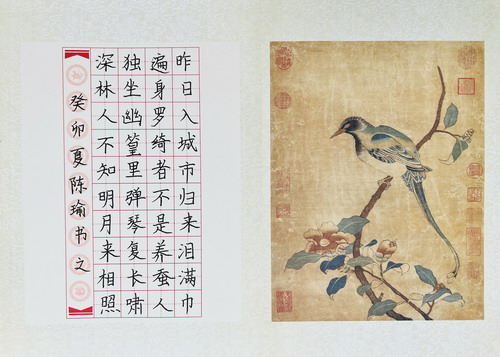 昨日入城市归来泪满巾
遍身罗绮者不是养蚕人
独坐幽篁里弹琴复长啸
深林人不知明月来相照
癸卯夏陈瑜书之